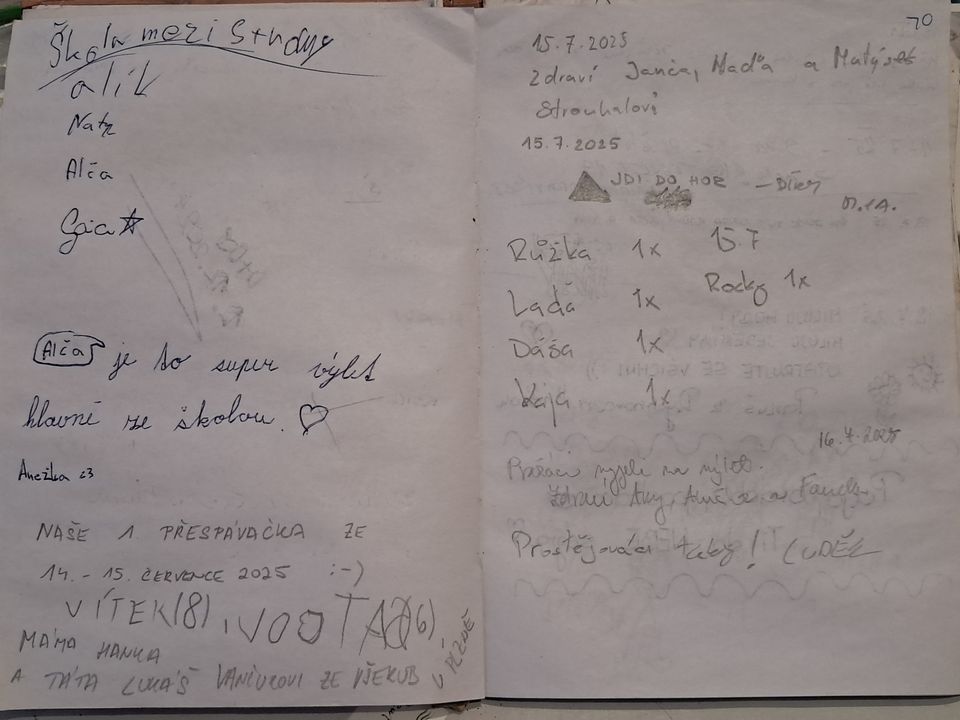 Škola mezi Stromy
alík
Naty
Alča
Gaia
Alča je to super výlet
hlavně ze školou.
Anežka <3
NAŠE 1. PŘESPÁVAČKA ZE
14. - 15. ČERVENCE 2025 :-)
VÍTEK(8), VOJTA (6)
MÁMA HANKA
A TÁTA LUKÁŠ VANČUROVI ZE VŠERUB U PLZNĚ
70
15.7.2025
Zdraví Janča, Naďa a Matýsek
Strouhalovi
15.7.2025
JDI DO HOR
M.+A.
Růžka 1x 15.7
Rocky 1x
Laďa 1x
Dáša 1x
Kája 1x
16.7.2025
Pražáci vyjeli na výlet.
Zdraví
Prostějováci taky! LUDĚK